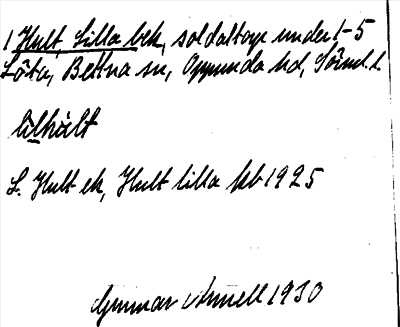 1 Hult, Lilla bek, soldattorp under 1-5
Löta, Bettna sn, Oppunda hd, Söml. l.
lilhült
L. Hult ek, Hult lilla kb 1925
Gunnar Arnell 1930